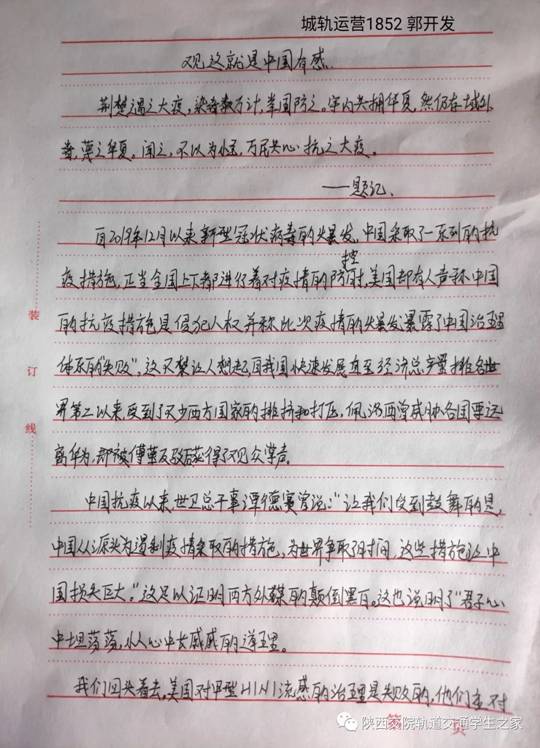 城轨运营1852 郭开发
观这就是中国有感
荆楚遇之大疫,染者数万计,举国防之。宇内共拥华夏,然仍存域外
者,薄之华夏。闻之,不以为怪,万民共心,抗之大疫。
——题记
自2019年12月以来新型冠状病毒的爆发,中国采取了一系列的抗
疫措施,正当全国上下都进行着对疫情的防控时,美国却有人声称中国
的抗疫措施是侵犯人权并称此次疫情的爆发暴露了中国治理
体系的“失败”。这不禁让人想起,自我国快速发展直至经济总产量排名世
界第二以来受到了不少西方国家的排挤和打压,佩洛西曾威胁各国要远
离华为,却被傅莹反驳获得了观众掌声。
中国抗疫以来,世卫总干事谭德赛曾说:“让我们受到鼓舞的是,
中国从源头为遏制疫情采取的措施,为世界争取了时间,这些措施让中
国损失巨大。”这足以证明西方外媒的颠倒黑白。这也说明了“君子心
中坦荡荡,小人心中长戚戚的道理。
我们回头看去,美国对甲型H1N1流感的治理是失败的,他们在对
装
订
线
第 页
陕西交院轨道交通学生之家